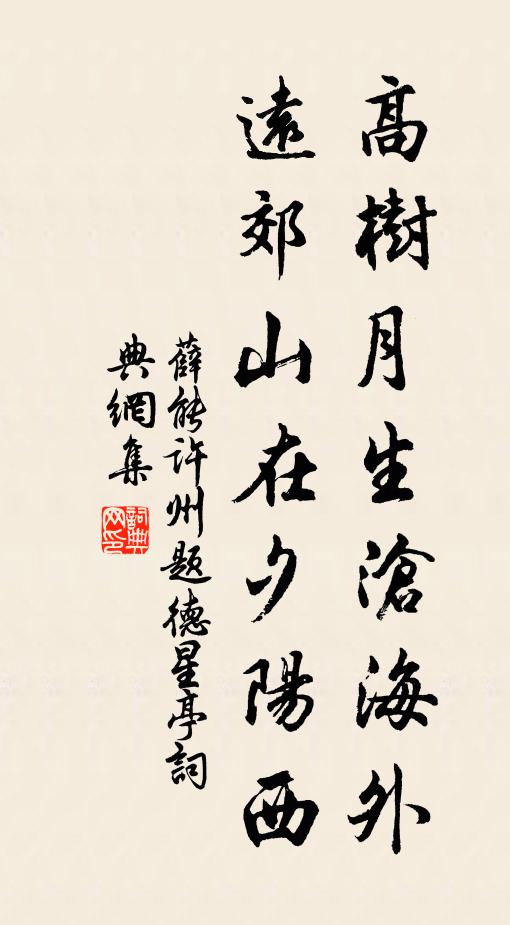 高樹月生滄海外
遠郊山在夕陽西
薛能許州題德星亭詞
典網集
詞典
网印